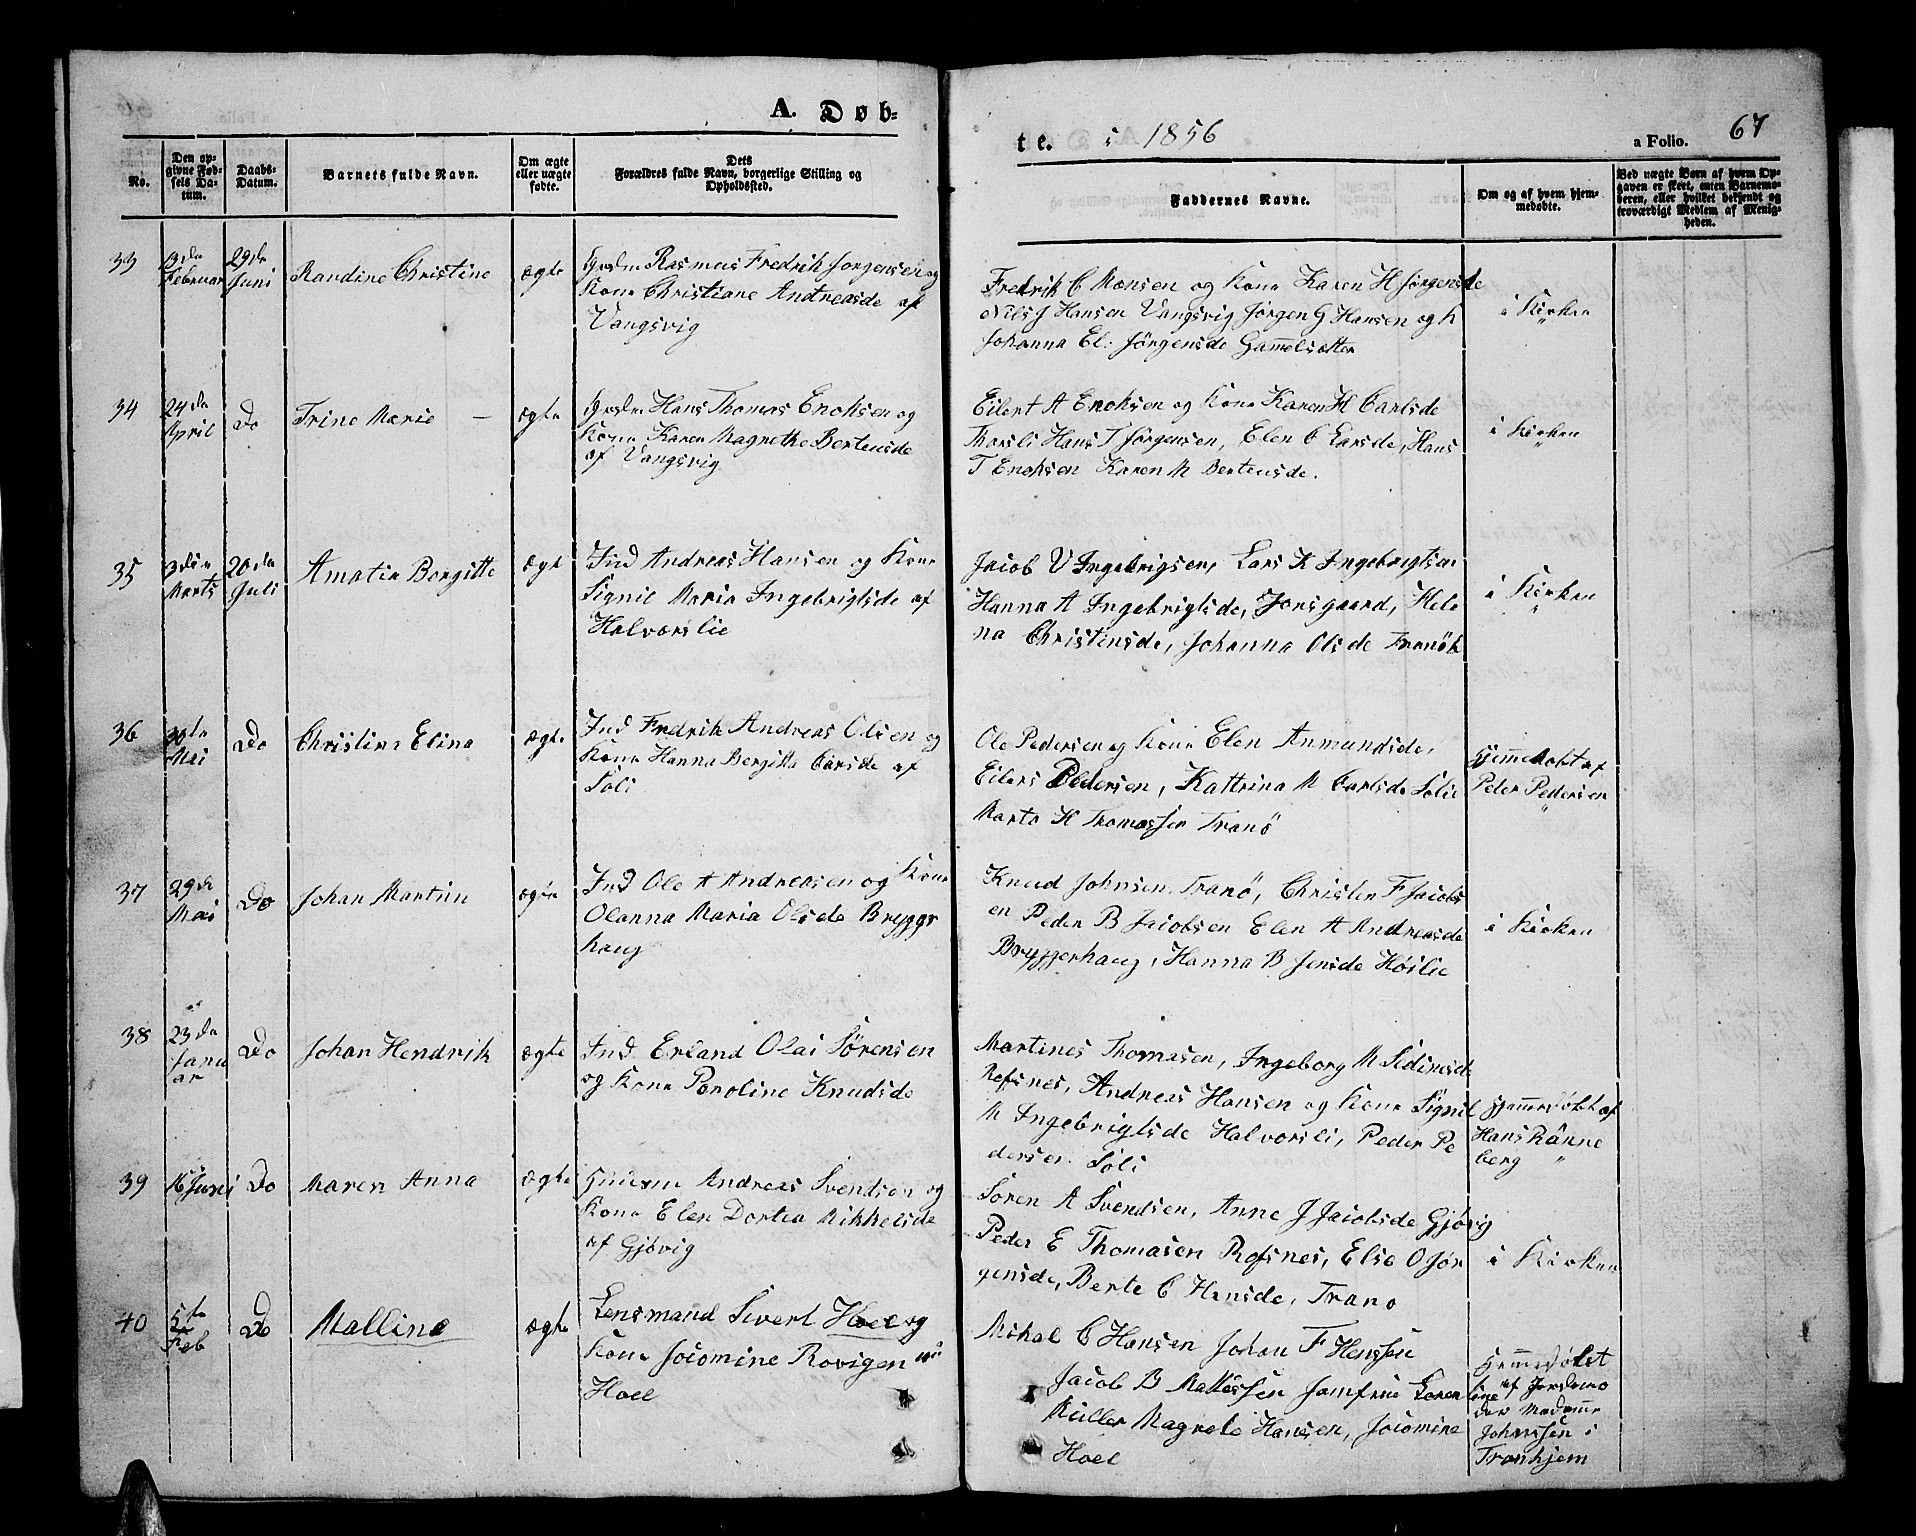 A. Døb-
te. i 1856
a Folio. 67
No.
Den op-
givne Fød-
sels Da-
tum.
Daabs-
Datum.
Barnets fulde Navn.
Om ægte
eller uægte
fødte.
Dets
Forældres fulde Navn, borgerlige Stilling og
Opholdssted.
Faddernes Navne.
Om og af hvem hjem-
medøbte.
Ved uægte Børn af hvem Op-
gaven er skeet, enten Barnemo-
deren, eller hvilket bekjendt og
troværdigt Medlem af Menig-
heden.
33
Februar
29de
Juni
Randine Christine
ægte
Rasmus Fredrik Jørgensen og
Kone Christiane Andreasde af
Vangsvig
Fredrik C Monsen og Kone Karen H Jørgensde
Nils J Hansen Vangsvig Jørgen G Hansen og K
Johanna El. Jørgensde Gammelsætter
i Kirken
34
24de
April
Do
Trine Marie —
ægte
Hans Thomas Enoksen og
Kone Karen Magrethe Bertensde
af Vangsvig
Eilert A Enoksen og Kone Karen H Carlsde
Thorsli Hans T Jørgensen, Elen C Larsde, Hans
T Enoksen Karen M Bertensde.
i Kirken
35
3die
Marts
20de
Juli
Amatie Borgitte
ægte
Ind Andreas Hansen og Kone
Signil Maria Ingebrigtsde af
Halvorslie
Jacob V Ingebrigsen, Lars K Ingebrigtsen
Hanna A Ingebrigtsde, Jonsgaard, Hele
na Christensde, Johanna Olsde Tranök
i Kirken
36
30te
Mai
Do
Christine Elina
ægte
Ind Fredrik Andreas Olsen og
Kone Hanna Bergitta Carsde af
Soli
Ole Pedersen og Kone Elen Anmundsde,
Eilers Pedersen, Kattrina M Carlsde Solie
Marta H Thomassen Tranö
Hjemmedøbt af
Peder Pedersen
37
29de
Mai
Do
Johan Martin
ægte
Ind Ole A Andreasen og Kone
Olanna Maria Olsde Brygger
haug
Knud Johnsen Tranö, Christen F Jacobs
en Peder B Jacobsen Elen A Andreasde
Bryggerhaug, Hanna B Jensde Høilie
i Kirken
38
23de
Janu
ar
Do
Johan Hendrik
ægte
Ind Erland Olai Sørensen
og Kone Peroline Knudsde
Martines Thomasen, Ingeborg M
Refsnes, Andreas Hansen og Kone Signil
M Ingebrigtsde Halvorsli, Peder Pe
dersen Soli
Hjemmedøbt af
Hans Rånne
berg
39
16 Juni
Do
Maren Anna
ægte
Andreas Svendsen og
Kone Elen Dortea Mikkelsde
af Gjøvig
Sören A Svendsen, Anne J Jacobsde Gjøvig
Peder E Thomasen Refsnes, Else O Jør
gensde, Berte C Hansde, Trano
i Kirken
40
5te
Feb
Do
Malline
ægte
Lensmand Sivert Hoel og
Kone Jocomine Rovigen
Hoel
Mikal C Hansen Johan F Henssen
Jacob B Jomfrue Loren
Müller Magrete Hansen, Jocomine
Hoel
Hjemmedøbt
af Jordemo
der Madamme
Johnssen i
Tronhjem